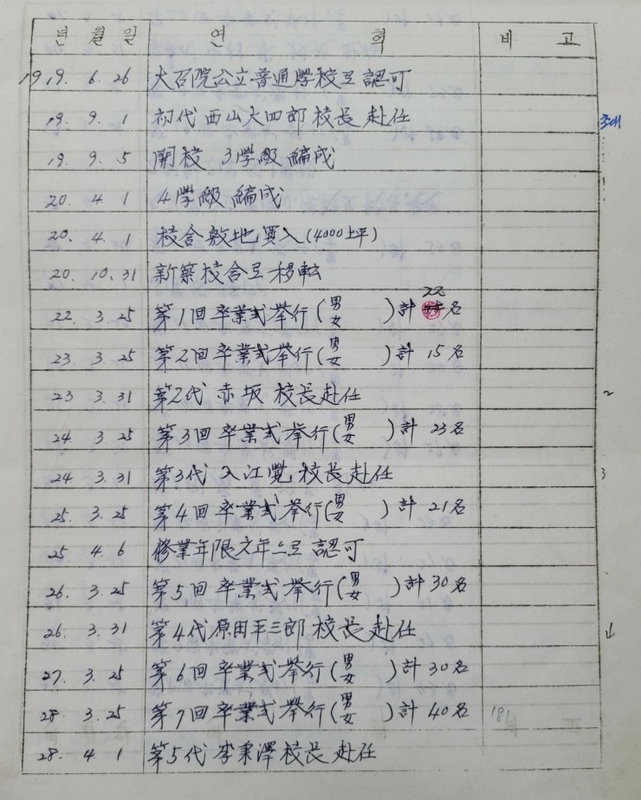 년 월 일 연 혁 비 고
1919. 6. 26 大召院公立普通學校로 認可
19. 9. 1 初代 西山大四郎 校長 赴任 초대
19. 9. 5 開校 3學級 編成
20. 4. 1 4學級 編成
20. 4. 1 校舎敷地 買入 (4000土平)
20. 10. 31 新築校舎로 移転
22. 3. 25 第1回 卒業式 挙行 (男女 ) 計 22名
23. 3. 25 第2回 卒業式 挙行 (男女 ) 計 15名
23 3. 31 第2代 赤坂 校長赴任 2
24 3 25 第3回 卒業式 挙行 (男女 ) 計 23名
24 3. 31 第3代 入江覺 校長赴任 3
25. 3. 25 第4回 卒業式 挙行 (男女 ) 計 21名
25 4. 6 修業年限六年으로 認可
26. 3. 25 第5回 卒業式 挙行 (男女 ) 計 30名
26. 3. 31 第4代 原田平三郎 校長 赴任 4
27. 3. 25 第6回 卒業式 挙行 (男女 ) 計 30名
28 3. 25 第7回 卒業式 挙行 (男女 ) 計 40名 181
28. 4. 1 第5代 李秉澤 校長 赴任